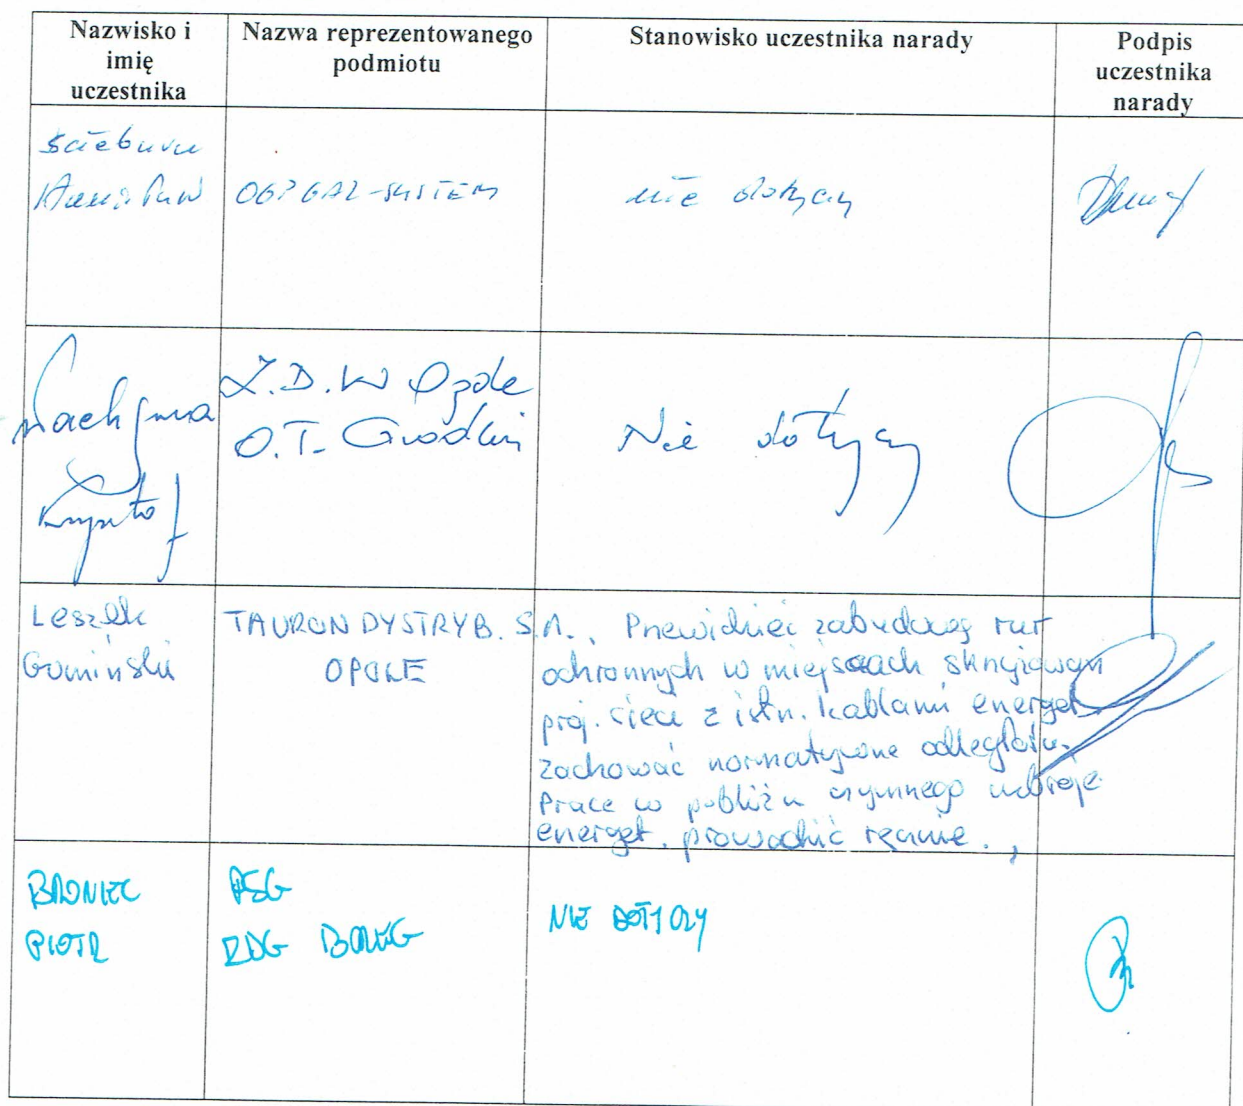 Nazwisko i
imię
uczestnika
Nazwa reprezentowanego
podmiotu
Stanowisko uczestnika narady
Podpis
uczestnika
narady
OGP GAZ-SYSTEM
nie dotyczy
Krzysztof
Z.D.W Opole
O.T. Grodków
Nie dotyczy
Leszek
Gomiński
TAURON DYSTRYB. S.A.,
OPOLE
Przewidzieć zabudowę rur
ochronnych w miejscach skrzyżowań
proj. sieci z istn. kablami energet.
Zachować normatywne odległości.
Prace w pobliżu czynnego uzbroje.
energet. prowadzić ręcznie.,
BRONIEC
PIOTR
PSG
RDG BRZEG
NIE DOTYCZY